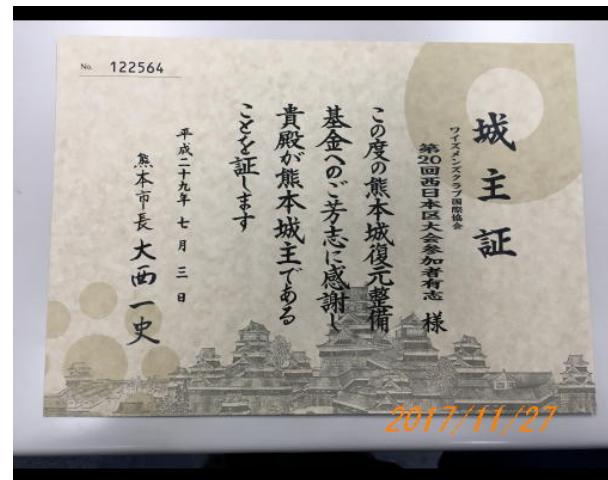 No. 122564
城主証
ワイズメンズクラブ国際協会
第20回西日本区大会参加者有志 様
この度の熊本城復元整備
基金へのご芳志に感謝し
貴殿が熊本城主である
ことを証します
平成二十九年七月三日
熊本市長 大西一史
2017/11/27